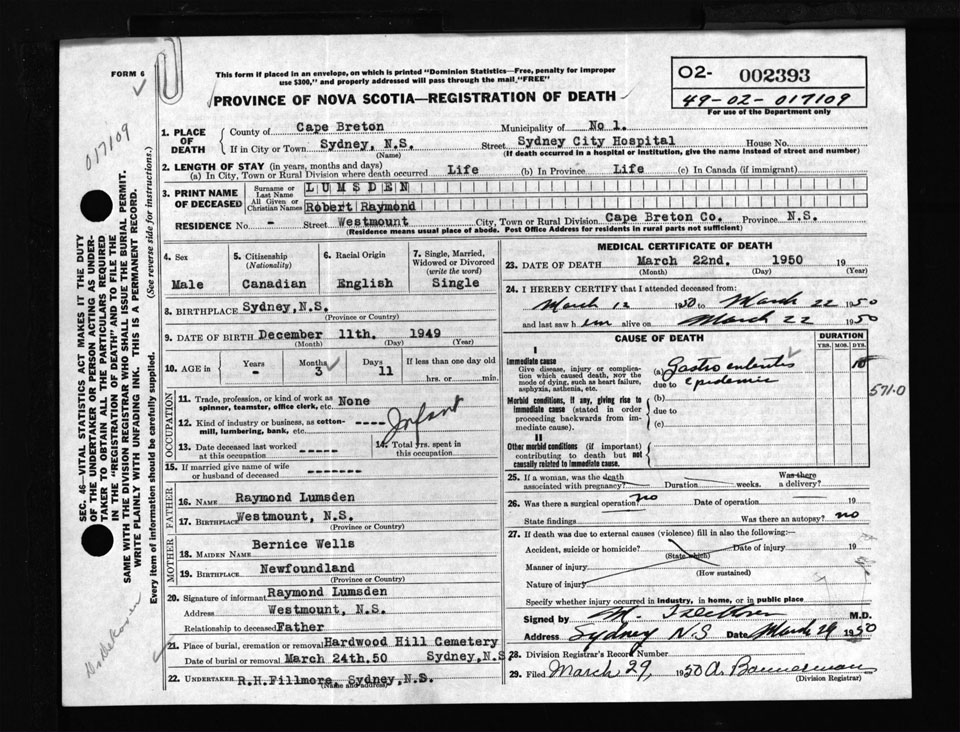 FORM 6
This form if placed in an envelope, on which is printed "Dominion Statistics—Free, penalty for improper
use $300," and properly addressed will pass through the mail "FREE"
PROVINCE OF NOVA SCOTIA—REGISTRATION OF DEATH
O2- 002393
49-02-017109
For use of the Department only
017109
1. PLACE OF DEATH
County of Cape Breton Municipality of No 1.
If in City or Town Sydney, N.S. Street Sydney City Hospital House No.
(Name) (If death occurred in a hospital or institution, give the name instead of street and number)
2. LENGTH OF STAY (in years, months and days)
(a) In City, Town or Rural Division where death occurred Life (b) In Province Life (c) In Canada (if immigrant)
3. PRINT NAME OF DECEASED
Surname or Last Name LUMSDEN
All Given or Christian Names Robert Raymond
RESIDENCE No. - Street Westmount City, Town or Rural Division Cape Breton Co. Province N.S.
(Residence means usual place of abode. Post Office Address for residents in rural parts not sufficient)
4. Sex
Male
5. Citizenship
(Nationality)
Canadian
6. Racial Origin
English
7. Single, Married,
Widowed or Divorced
(write the word)
Single
8. BIRTHPLACE Sydney, N.S.
(Province or Country)
9. DATE OF BIRTH December 11th, 1949
(Month) (Day) (Year)
10. AGE in
Years
-
Months
3
Days
11
If less than one day old
hrs. or min.
OCCUPATION
11. Trade, profession, or kind of work as
spinner, teamster, office clerk, etc. None
12. Kind of industry or business, as cotton-
mill, lumbering, bank, etc. -----
Infant
13. Date deceased last worked
at this occupation -----
14. Total yrs. spent in
this occupation
15. If married give name of wife
or husband of deceased ------
FATHER
16. NAME Raymond Lumsden
17. BIRTHPLACE Westmount, N.S.
(Province or Country)
MOTHER
18. MAIDEN NAME Bernice Wells
19. BIRTHPLACE Newfoundland
(Province or Country)
20. Signature of informant Raymond Lumsden
Address Westmount, N.S.
Relationship to deceased Father
21. Place of burial, cremation or removal Hardwood Hill Cemetery
Date of burial or removal March 24th.50 Sydney, N.S.
22. UNDERTAKER R.H.Fillmore, Sydney, N.S.
(Name and address)
MEDICAL CERTIFICATE OF DEATH
23. DATE OF DEATH March 22nd. 1950 19
(Month) (Day) (Year)
24. I HEREBY CERTIFY that I attended deceased from:
March 12 1950 to March 22 1950
and last saw him alive on March 22 1950
CAUSE OF DEATH
DURATION
YRS. MOS. DYS.
I
Immediate cause
Give disease, injury or complica-
tion which caused death, not the
mode of dying, such as heart failure,
asphyxia, asthenia, etc.
(a) Gastro enteritis 10
due to epidemic
571-0
Morbid conditions, if any, giving rise to
immediate cause (stated in order
proceeding backwards from im-
mediate cause).
(b)
due to
(c)
II
Other morbid conditions (if important)
contributing to death but not
causally related to immediate cause.
25. If a woman, was the death
associated with pregnancy? Duration weeks. Was there
a delivery?
26. Was there a surgical operation? no Date of operation 19
State findings Was there an autopsy? no
27. If death was due to external causes (violence) fill in also the following:—
Accident, suicide or homicide? Date of injury 19
(State which)
Manner of injury
(How sustained)
Nature of injury
Specify whether injury occurred in industry, in home, or in public place
Signed by M. M.D.
Address Sydney N.S Date March 29 1950
28. Division Registrar's Record Number
29. Filed March 29, 1950 A. Bannerman
(Division Registrar)
SEC. 46—VITAL STATISTICS ACT MAKES IT THE DUTY
OF THE UNDERTAKER OR PERSON ACTING AS UNDER-
TAKER TO OBTAIN ALL THE PARTICULARS REQUIRED
IN THE "REGISTRATION OF DEATH" AND TO FILE THE
SAME WITH THE DIVISION REGISTRAR WHO SHALL ISSUE THE BURIAL PERMIT.
WRITE PLAINLY WITH UNFADING INK. THIS IS A PERMANENT RECORD.
Every item of information should be carefully supplied. (See reverse side for instructions.)